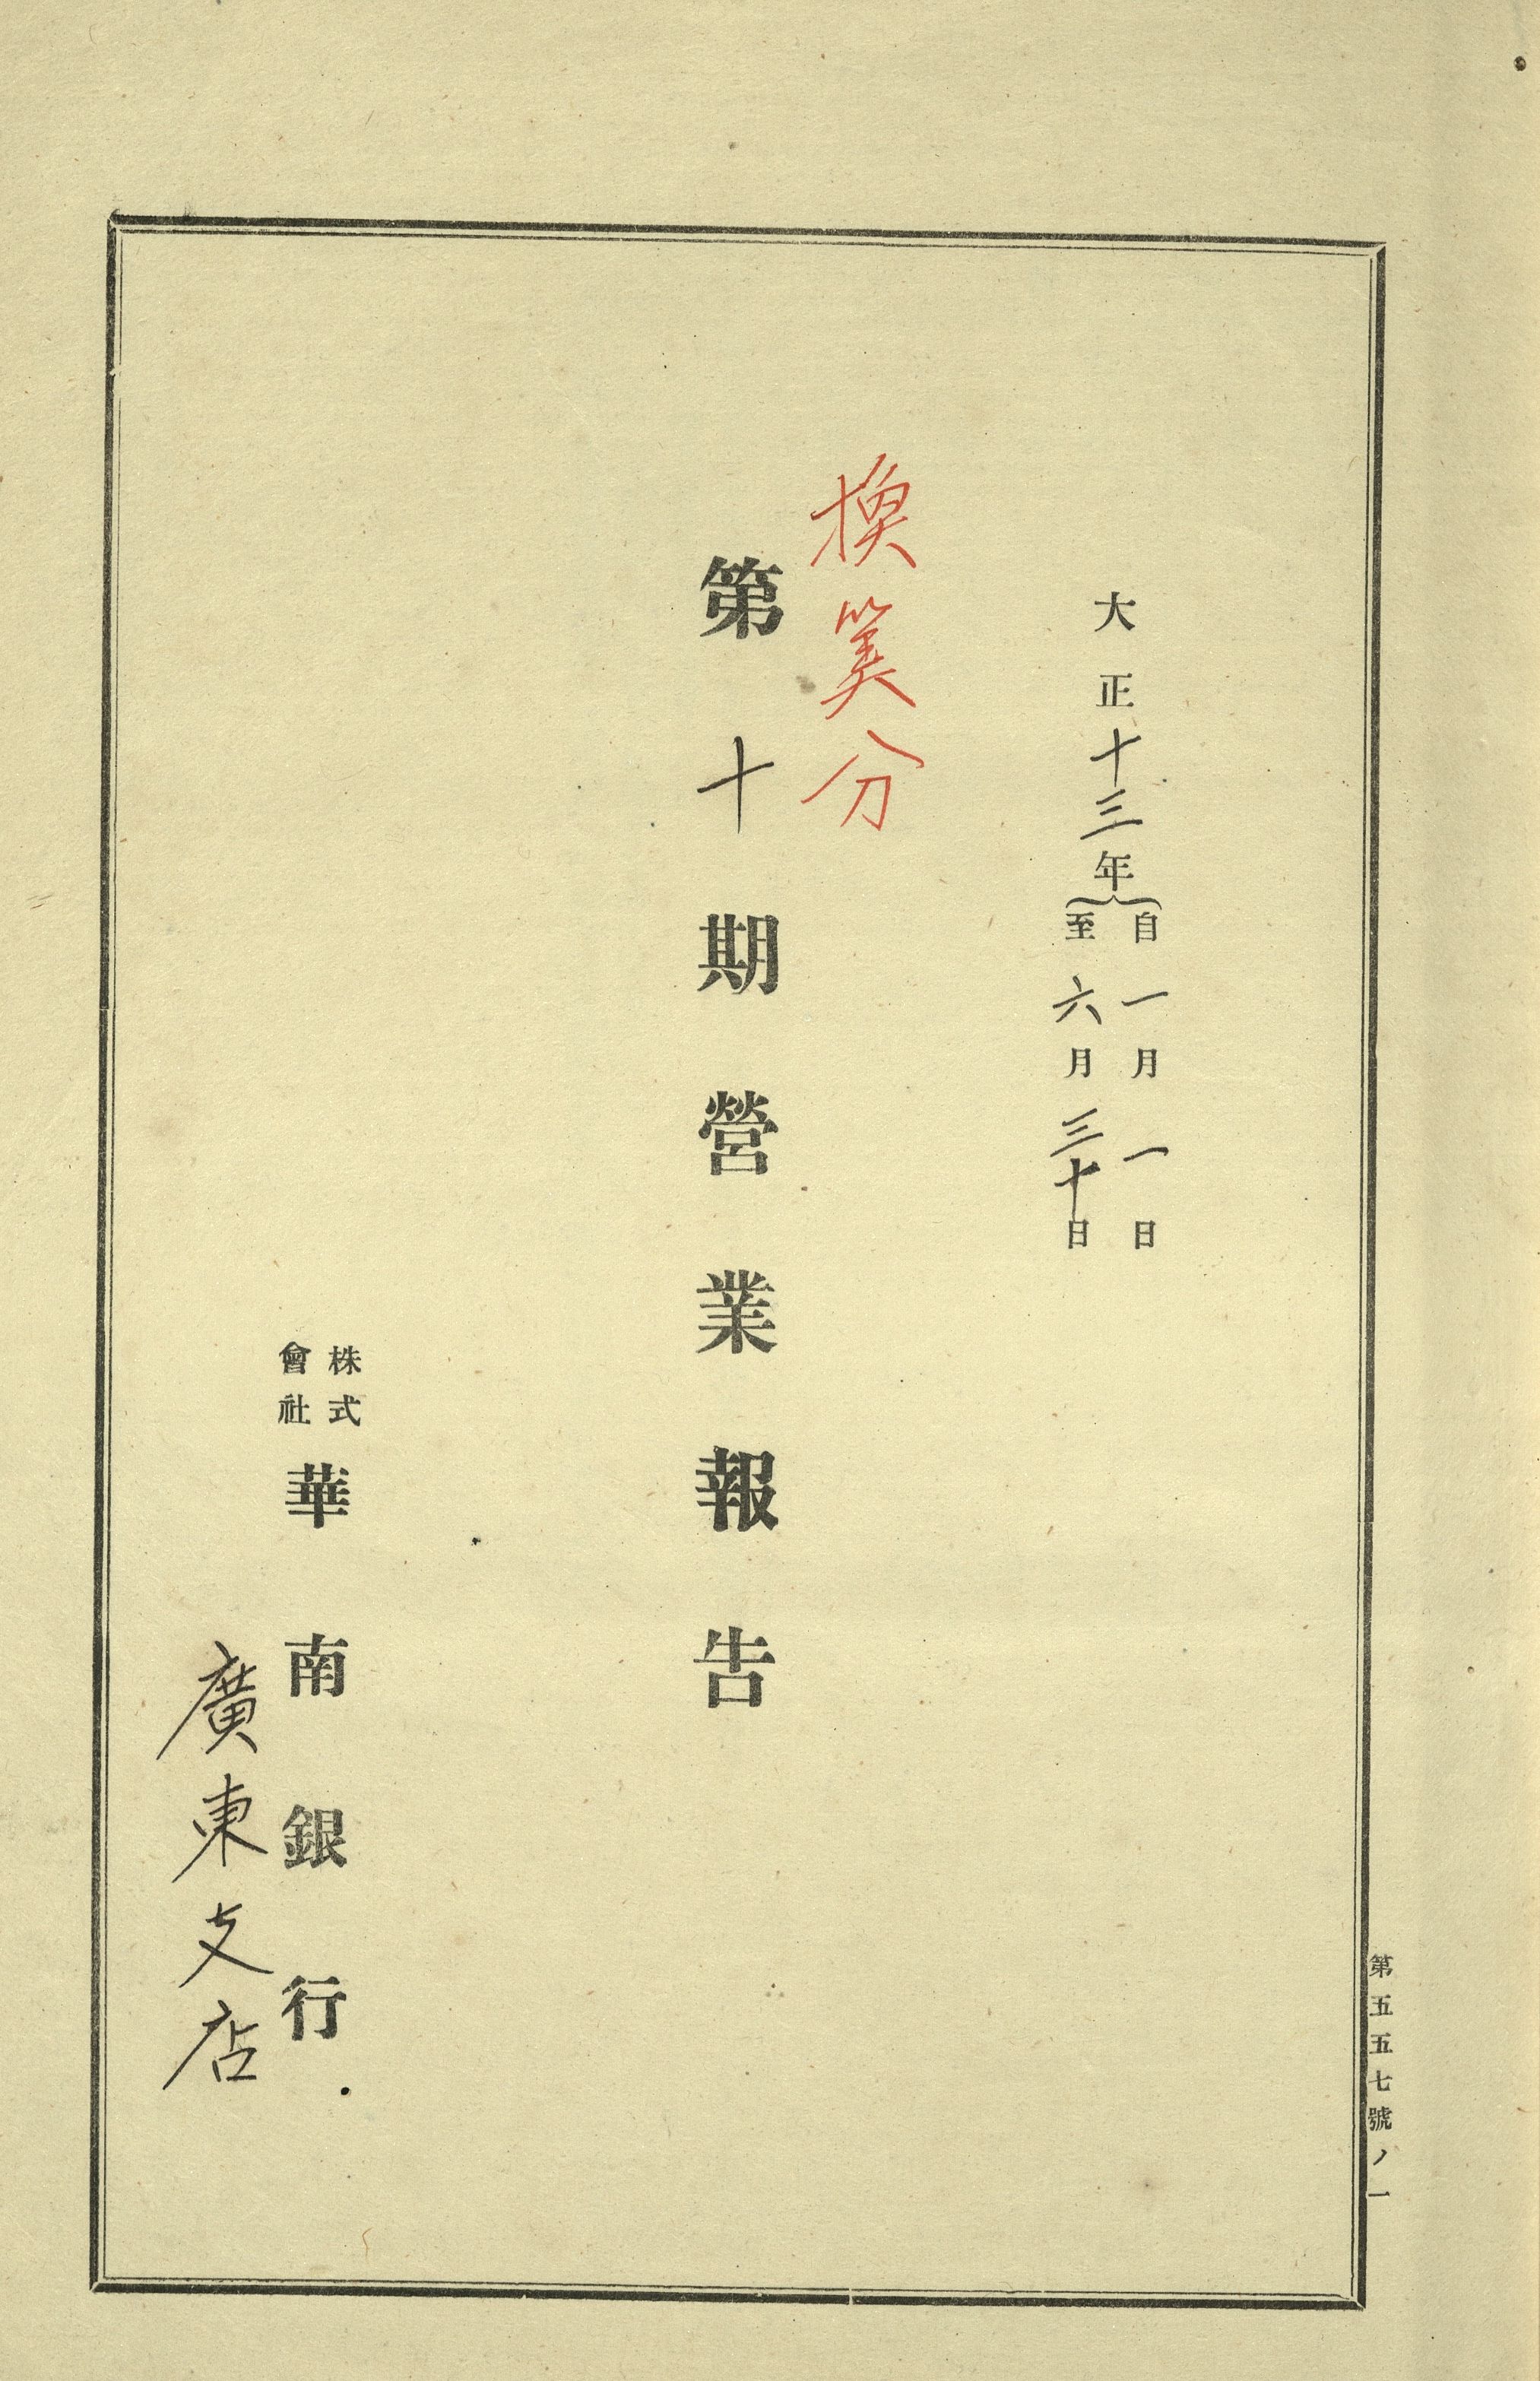 大正十三年
自一月一日
至六月三十日
換算分
第十期營業報告
株式
會社
華南銀行
廣東支店
第五五七號ノ一